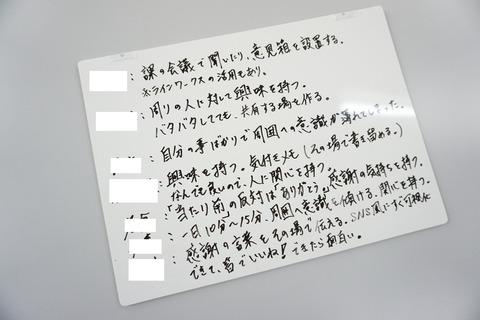 ：課の会議で聞いたり、意見箱を設置する。
※ラインワークスの活用もあり。
：周りの人に対して興味を持つ。
バタバタしてても、共有する場を作る。
：自分の事ばかりで周囲への意識が薄れてしまった。
：興味を持つ。気付きメモ(その場で書き留める。)
なんでも良いので、人に関心を持つ。
：「当たり前」の反対は「ありがとう」感謝の気持ちを持つ。
：一日10分～15分、周囲へ意識を傾ける。関心を持つ。
：感謝の言葉をその場で伝える。SNS風にすぐ可視化
できて、皆でいいね！できたら面白い。